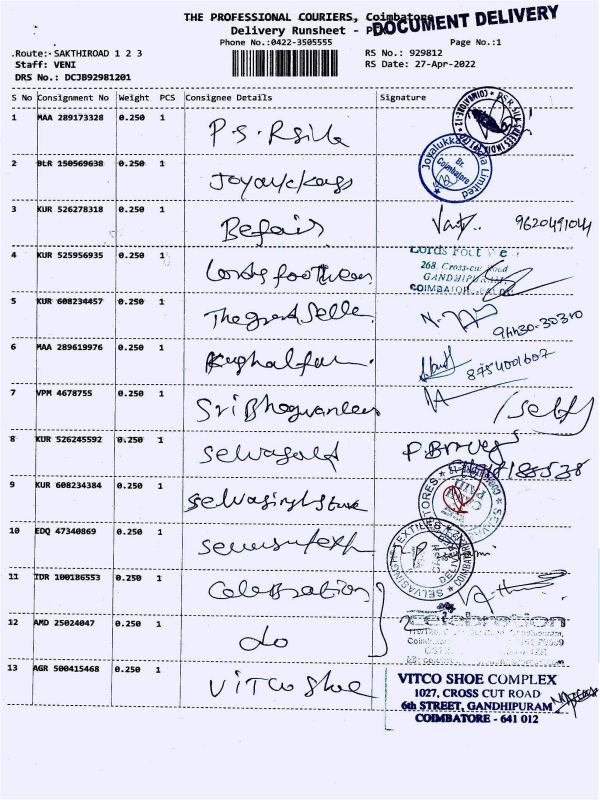 THE PROFESSIONAL COURIERS, Coimbatore
DOCUMENT DELIVERY
Delivery Runsheet -
Phone No.:0422-3505555
Page No.:1
Route: SAKTHIROAD 1 2 3
RS No.: 929812
Staff: VENI
RS Date: 27-Apr-2022
DRS No.: DCJB92981201
S No Consignment No Weight PCS Consignee Details Signature
1 MAA 289173328 0.250 1 P.S.R silk
2 BLR 150569638 0.250 1 Joyalukkas
Joyalukkas India Limited
Br.
Coimbatore
3 KUR 526278318 0.250 1 Befair 9620491044
4 KUR 525956935 0.250 1 Lords footwear
Lords Foot
268, Cross-cut Road
GANDHIPURAM
COIMBATORE
5 KUR 608234457 0.250 1 The great Selle
6 MAA 289619976 0.250 1 8754001607
7 VPM 4678755 0.250 1 Sri Bhagvan /self
8 KUR 526245592 0.250 1 Selvagold
9 KUR 608234384 0.250 1 Selvasingh Store
10 EDQ 47340869 0.250 1
SELVASINGH TEXTILES
11 IDR 100186553 0.250 1 Celebration
12 AMD 25024047 0.250 1 do
13 AGR 500415468 0.250 1 Vitco Shoe
VITCO SHOE COMPLEX
1027, CROSS CUT ROAD
6th STREET, GANDHIPURAM
COIMBATORE - 641 012